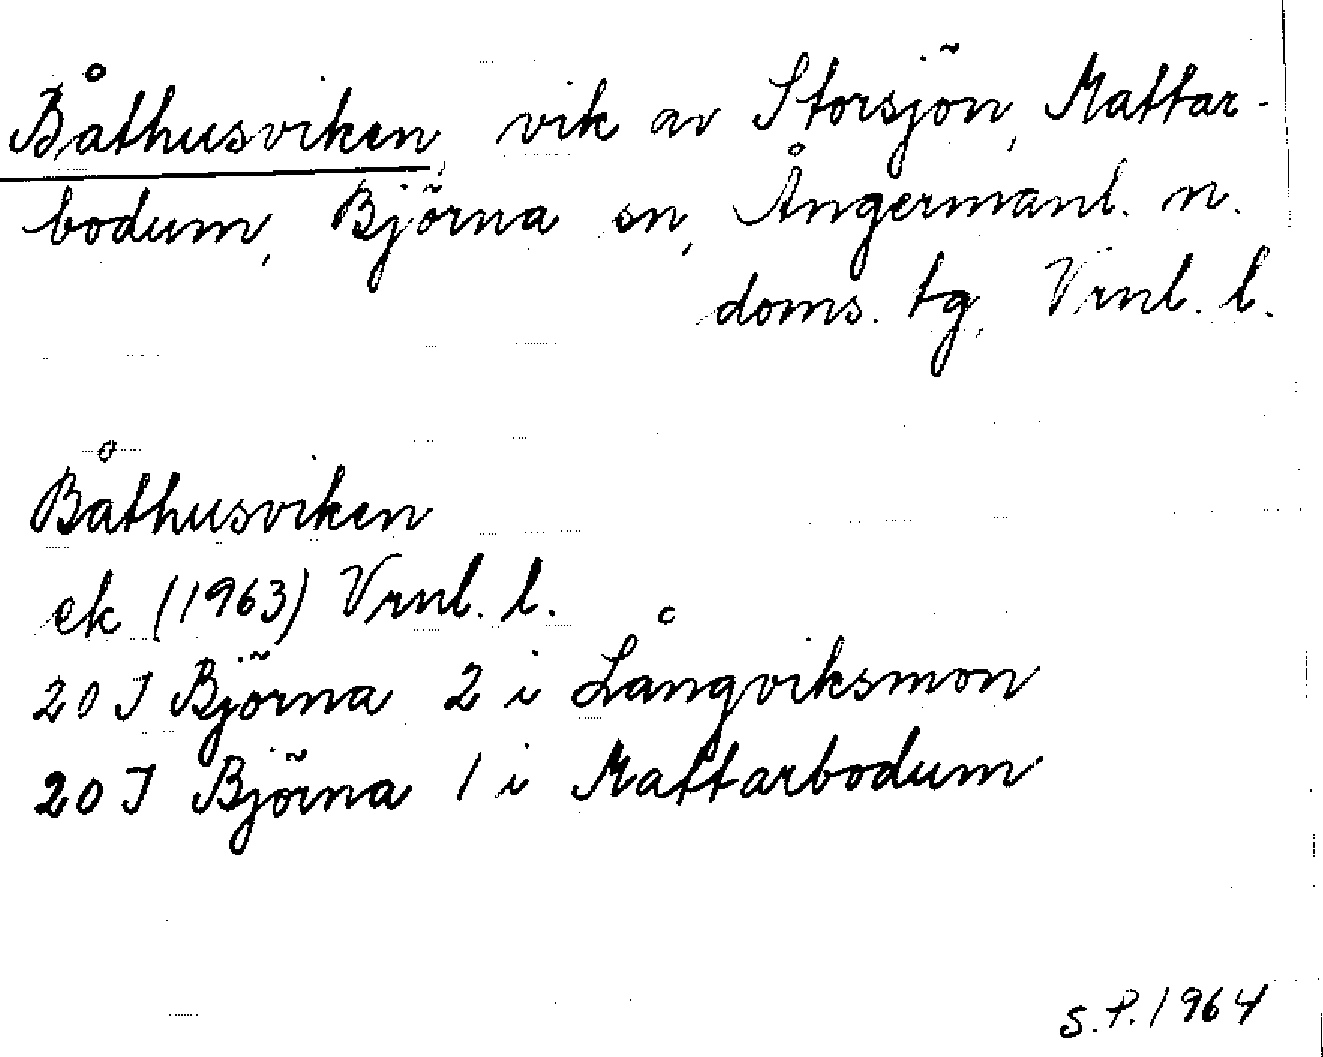 Båthusviken, vik av Storsjön, Mattar-
bodum, Björna sn, Ångermanl. n.
doms. tg, Vrnl. l.
Båthusviken
ek (1963) Vrnl. l.
20 J Björna 2 i Långviksmon
20 J Björna 1 i Mattarbodum
S.P. 1964